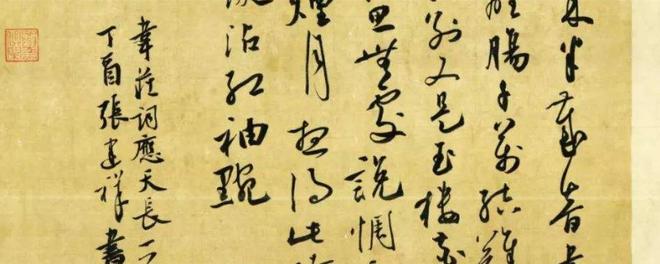 来半歲音書
離腸千萬結難
別又是玉樓花
思無處說惆
煙月想得此時
沾紅袖黦
韋莊詞應天長一
丁酉張建祥書